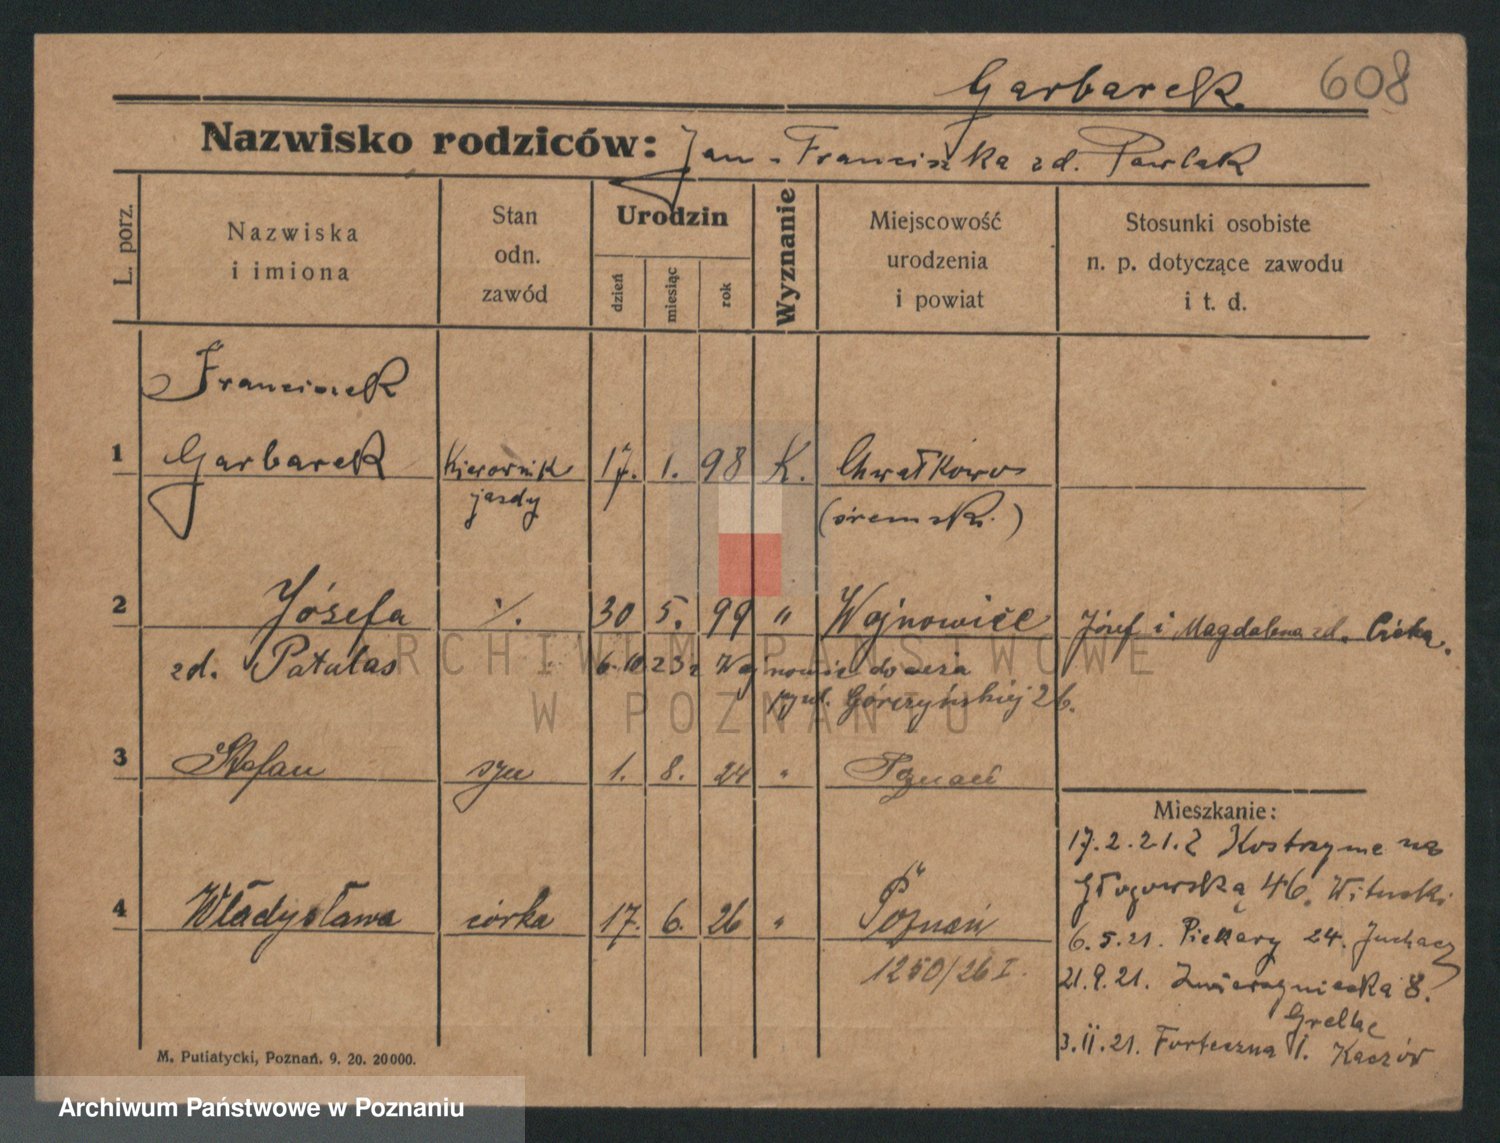 Garbarek 608
Nazwisko rodziców: Jan - Franciszka zd. Pawlak
L. porz.
Nazwiska
i imiona
Stan
odn.
zawód
Urodzin
dzień
miesiąc
rok
Wyznanie
Miejscowość
urodzenia
i powiat
Stosunki osobiste
n. p. dotyczące zawodu
i t. d.
Franciszek
1 Garbarek Kierownik 17. 1. 98 K. Chwałkowo
jazdy (śremski.)
2 Józefa 30 5. 99 " Wojnowice Józef i Magdalena zd.
zd. Patalas 6.10 23 z Wojnowic do męża
Górczyńskiej 26.
3 Stefan syn 1. 8. 24 " Poznań
Mieszkanie:
17.2.21. z Kostrzyna na
Głogowską 46. Wituski
4 Władysława córka 17. 6. 26 " Poznań
6.5.21. Piekary 24. Juchacz
1250/26 I.
21.9.21. Zwierzyniecka 8.
3.11.21. Forteczna 1.
M. Putiatycki, Poznań. 9. 20. 20000.
ARCHIWUM PAŃSTWOWE
W POZNANIU
Archiwum Państwowe w Poznaniu